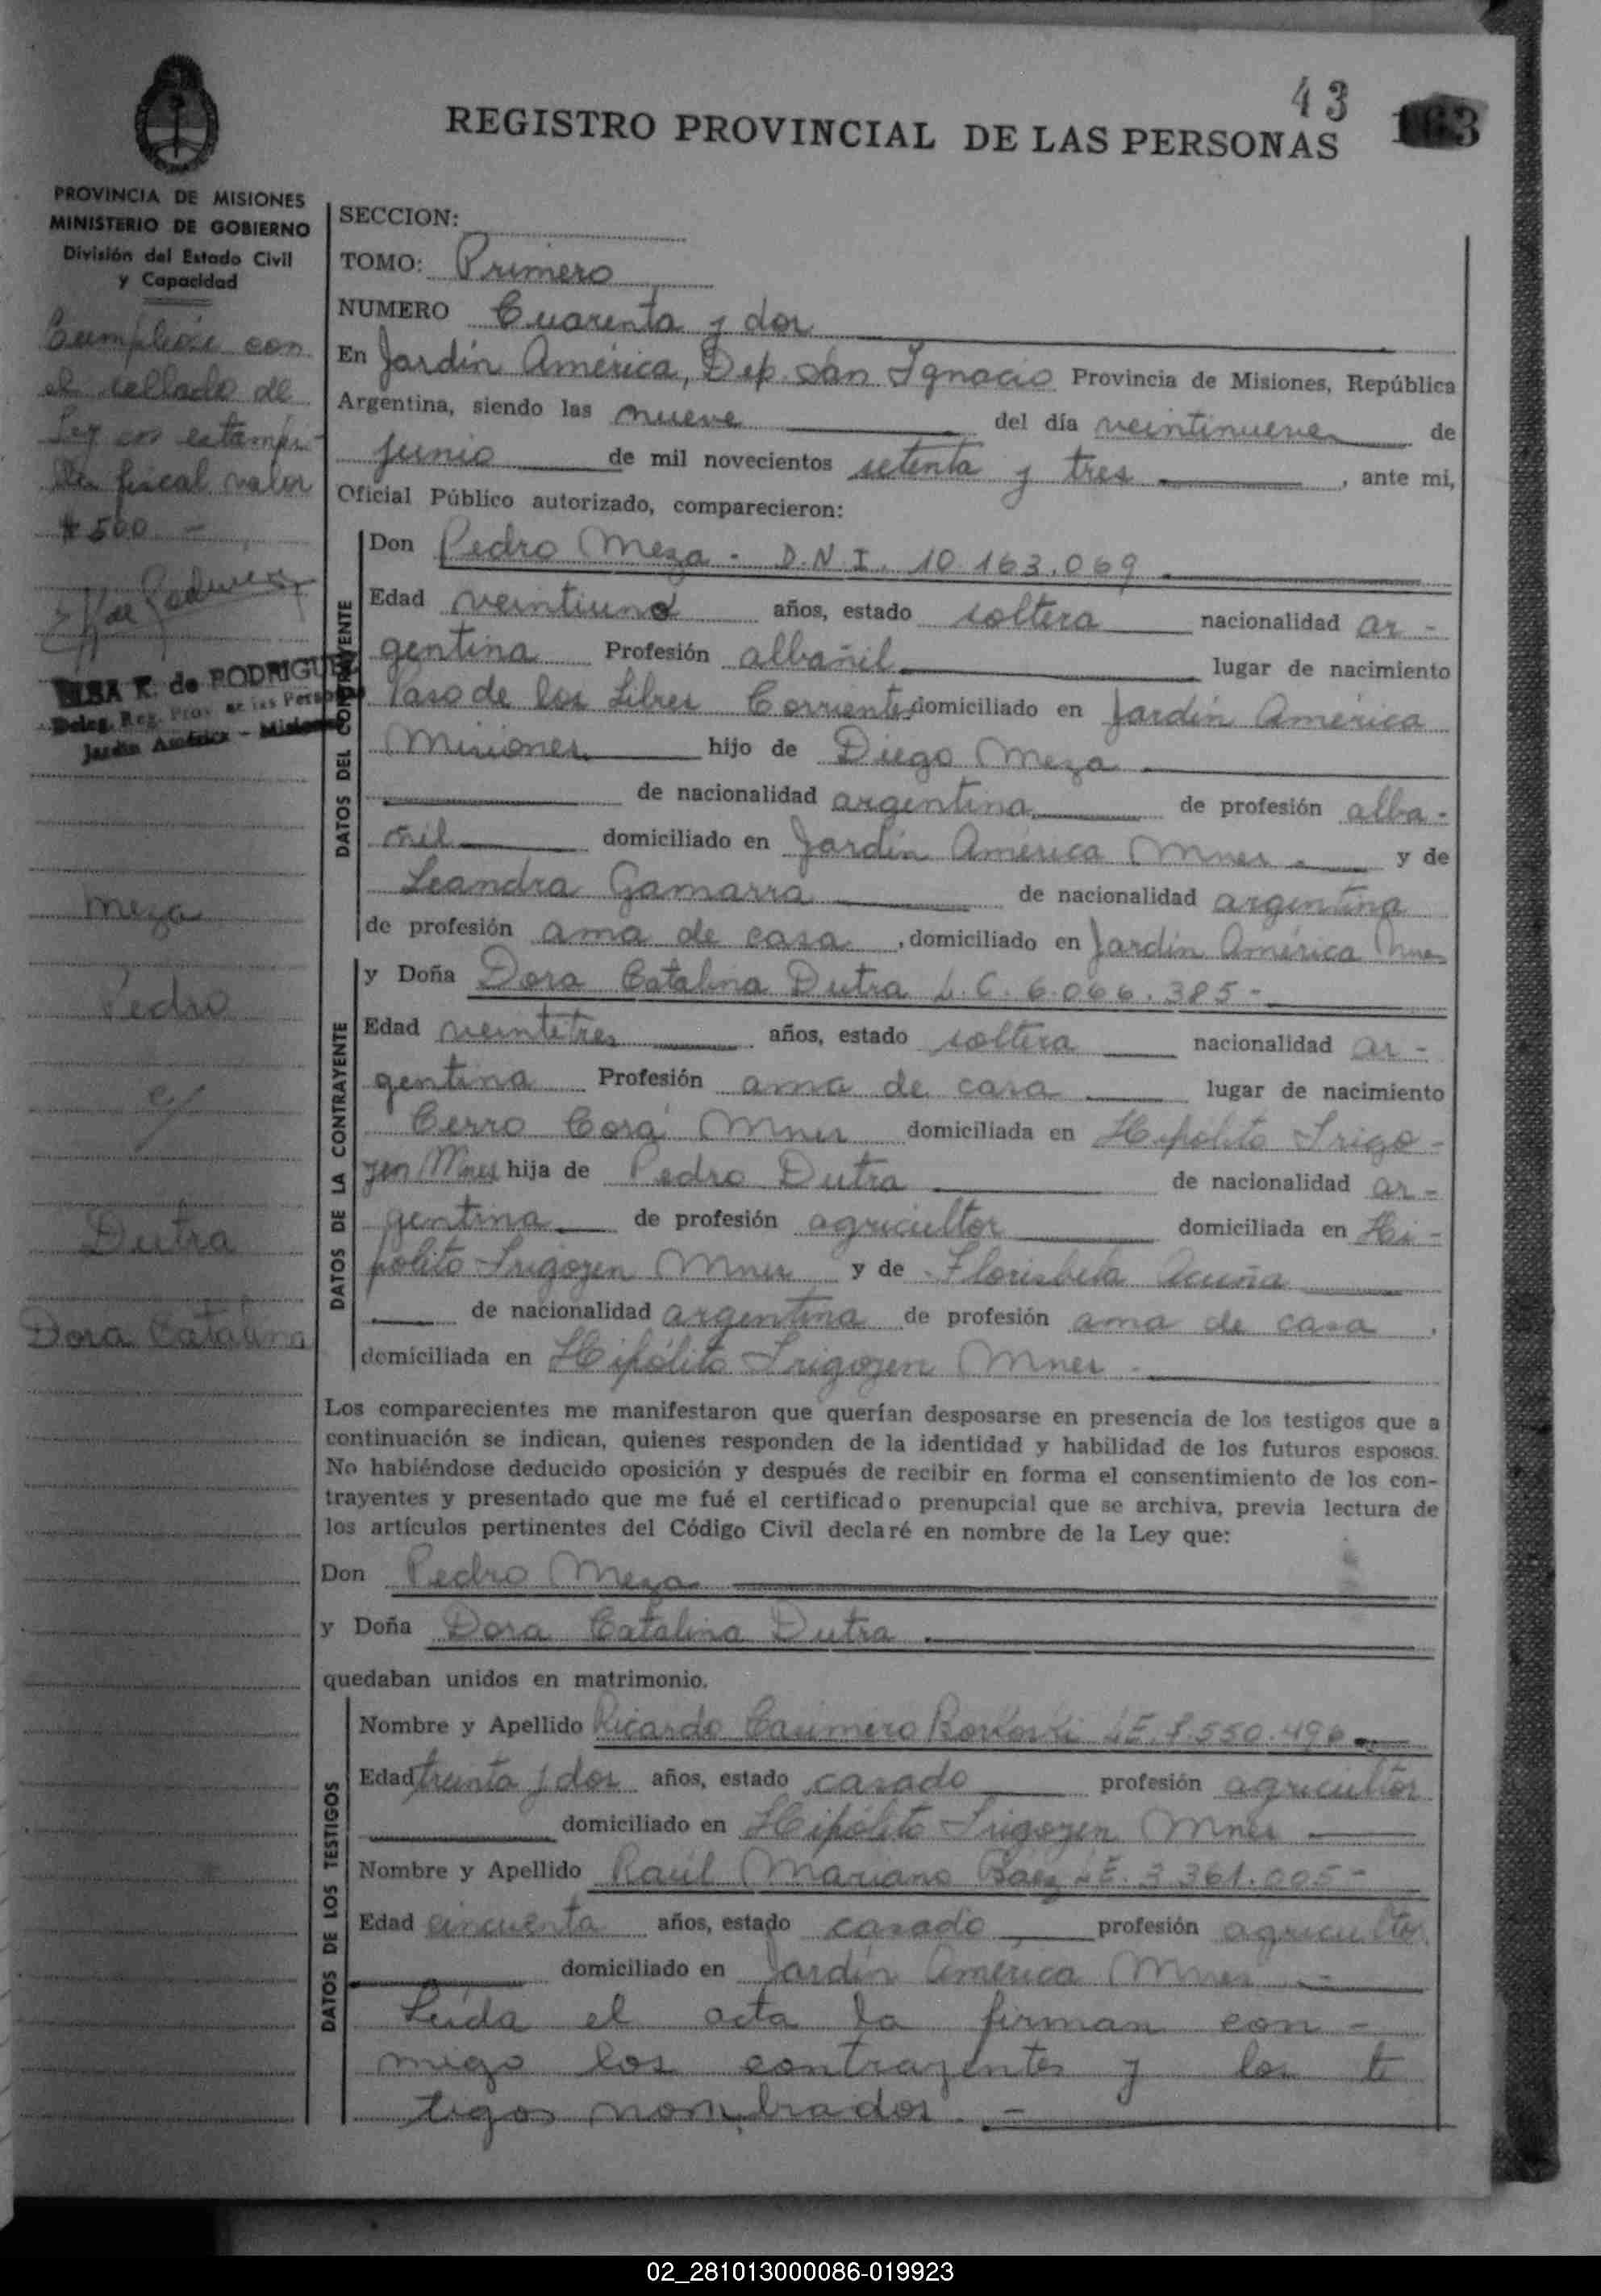 43
163
REGISTRO PROVINCIAL DE LAS PERSONAS
PROVINCIA DE MISIONES
MINISTERIO DE GOBIERNO
División del Estado Civil
y Capacidad
Cumplióse con
el sellado de
Ley en estampi-
lla fiscal valor
$ 500.-
ELSA K. de RODRIGUEZ
Deleg. Reg. Prov. de las Personas
Jardín América - Misiones
Meza
Pedro
c/
Dutra
Dora Catalina
SECCION:
TOMO: Primero
NUMERO Cuarenta y dos
En Jardín América, Dep. San Ignacio Provincia de Misiones, República
Argentina, siendo las nueve del día veintinueve de
junio de mil novecientos setenta y tres, ante mi,
Oficial Público autorizado, comparecieron:
DATOS DEL CONTRAYENTE
Don Pedro Meza - D.N.I. 10.163.069
Edad veintiuno años, estado soltera nacionalidad ar-
gentina Profesión albañil lugar de nacimiento
Paso de los Libres Corrientes domiciliado en Jardín América
Misiones hijo de Diego Meza
de nacionalidad argentina de profesión alba-
ñil domiciliado en Jardín América Mnes. y de
Leandra Gamarra de nacionalidad argentina
de profesión ama de casa, domiciliado en Jardín América Mnes
DATOS DE LA CONTRAYENTE
y Doña Dora Catalina Dutra L.C. 6.066.385-
Edad veintitres años, estado soltera nacionalidad ar-
gentina Profesión ama de casa lugar de nacimiento
Cerro Corá Mnes domiciliada en Hipolito Irigo-
yen Mnes hija de Pedro Dutra de nacionalidad ar-
gentina de profesión agricultor domiciliada en Hi-
polito Irigoyen Mnes y de Florisbela Acuña
de nacionalidad argentina de profesión ama de casa,
domiciliada en Hipólito Irigoyen Mnes.
Los comparecientes me manifestaron que querían desposarse en presencia de los testigos que a
continuación se indican, quienes responden de la identidad y habilidad de los futuros esposos.
No habiéndose deducido oposición y después de recibir en forma el consentimiento de los con-
trayentes y presentado que me fué el certificado prenupcial que se archiva, previa lectura de
los artículos pertinentes del Código Civil declaré en nombre de la Ley que:
Don Pedro Meza
y Doña Dora Catalina Dutra
quedaban unidos en matrimonio.
DATOS DE LOS TESTIGOS
Nombre y Apellido Ricardo Casimero Borkoski L.E. 8.550.496
Edad treinta y dos años, estado casado profesión agricultor
domiciliado en Hipólito Irigoyen Mnes
Nombre y Apellido Raúl Mariano Báez L.E. 3.361.005-
Edad cincuenta años, estado casado profesión agricultor
domiciliado en Jardín América Mnes
Leida el acta la firman con-
migo los contrayentes y los te
tigos nombrados.-
02_281013000086-019923